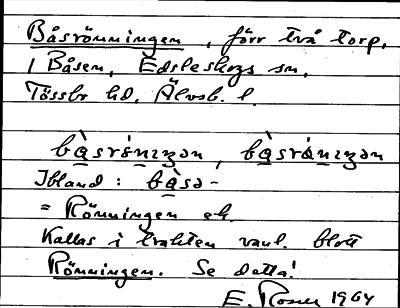 Båsrönningen, förr två torp,
i Båsen, Edsleskogs sn,
Tössbo hd, Älvsb. l.
bà̱srǿ̀nɩŋən, bà̱srà̱nɩŋən
Ibland: bà̱sə-
= Rönningen ek.
Kallas i trakten vanl. blott
Rönningen. Se detta!
E. Rosen 1964